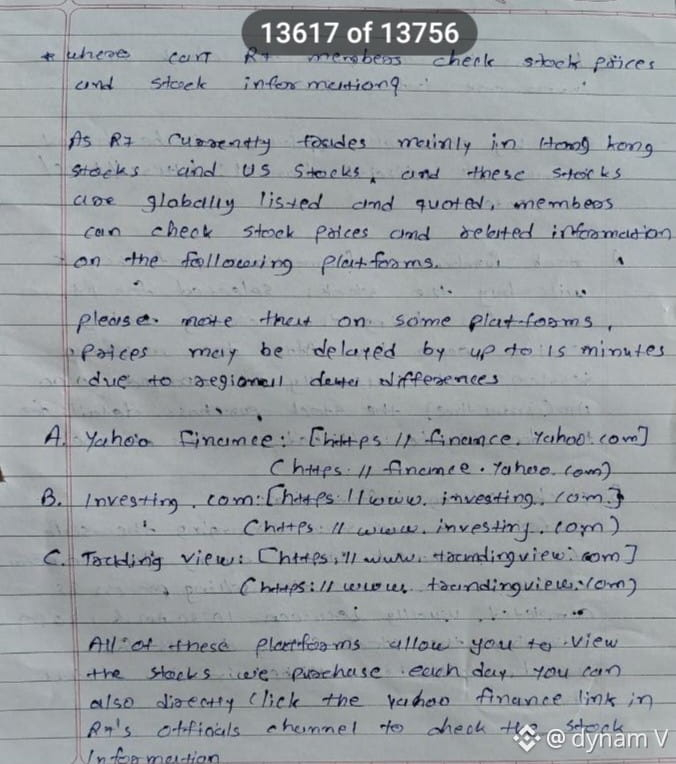 13617 of 13756
* where can R7 members check stock prices
and stock information?
As R7 Currently trades mainly in Hong kong
stocks and US stocks, and these stocks
are globally listed and quoted, members
can check stock prices and related information
on the following platforms.
please note that on some platforms,
prices may be delayed by up to 15 minutes
due to regional data differences
A. Yahoo Finance: [https // finance. Yahoo. com]
(https // finance. Yahoo. com)
B. Investing. com: [https // www. investing. com]
(https // www. investing. com)
C. Tradding view: [https // www. traindingview. com]
(https:// www. traindingview. com)
All of these platforms allow you to view
the stocks we purchase each day. you can
also directly click the yahoo finance link in
R7's officials channel to check the stock
Information
@ dynam V